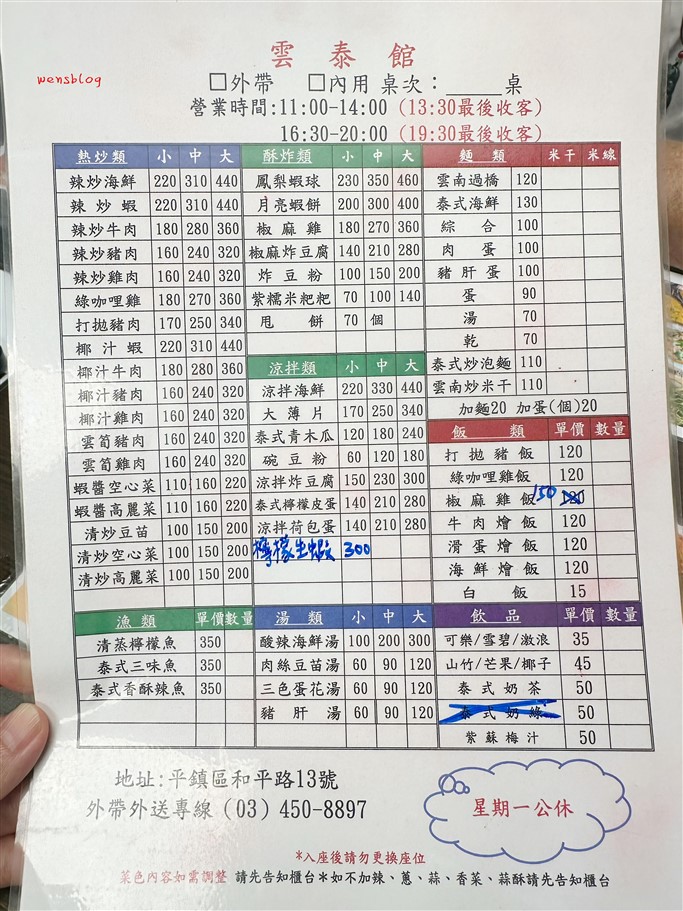 雲泰館
wensblog
□外帶 □內用 桌次：_____桌
營業時間:11:00-14:00 (13:30最後收客)
16:30-20:00 (19:30最後收客)
熱炒類 小 中 大
辣炒海鮮 220 310 440
辣炒蝦 220 310 440
辣炒牛肉 180 280 360
辣炒豬肉 160 240 320
辣炒雞肉 160 240 320
綠咖哩雞 180 270 360
打拋豬肉 170 250 340
椰汁蝦 220 310 440
椰汁牛肉 180 280 360
椰汁豬肉 160 240 320
椰汁雞肉 160 240 320
雲筍豬肉 160 240 320
雲筍雞肉 160 240 320
蝦醬空心菜 110 160 220
蝦醬高麗菜 110 160 220
清炒豆苗 100 150 200
清炒空心菜 100 150 200
清炒高麗菜 100 150 200
酥炸類 小 中 大
鳳梨蝦球 230 350 460
月亮蝦餅 200 300 400
椒麻雞 180 270 360
椒麻炸豆腐 140 210 280
炸豆粉 100 150 200
紫糯米粑粑 70 100 140
甩餅 70 個
涼拌類 小 中 大
涼拌海鮮 220 330 440
大薄片 170 250 340
泰式青木瓜 120 180 240
碗豆粉 60 120 180
涼拌炸豆腐 150 230 300
泰式檸檬皮蛋 140 210 280
涼拌荷包蛋 140 210 280
檸檬生蝦 300
麵類 米干 米線
雲南過橋 120
泰式海鮮 130
綜合 100
肉蛋 100
豬肝蛋 100
蛋 90
湯 70
乾 70
泰式炒泡麵 110
雲南炒米干 110
加麵20 加蛋(個)20
飯類 單價 數量
打拋豬飯 120
綠咖哩雞飯 120
椒麻雞飯 150 120
牛肉燴飯 120
滑蛋燴飯 120
海鮮燴飯 120
白飯 15
漁類 單價 數量
清蒸檸檬魚 350
泰式三味魚 350
泰式香酥辣魚 350
湯類 小 中 大
酸辣海鮮湯 100 200 300
肉絲豆苗湯 60 90 120
三色蛋花湯 60 90 120
豬肝湯 60 90 120
飲品 單價 數量
可樂/雪碧/激浪 35
山竹/芒果/椰子 45
泰式奶茶 50
泰式奶綠 50
紫蘇梅汁 50
地址:平鎮區和平路13號
外帶外送專線 (03) 450-8897
星期一公休
*入座後請勿更換座位
菜色內容如需調整 請先告知櫃台*如不加辣、蔥、蒜、香菜、蒜酥請先告知櫃台